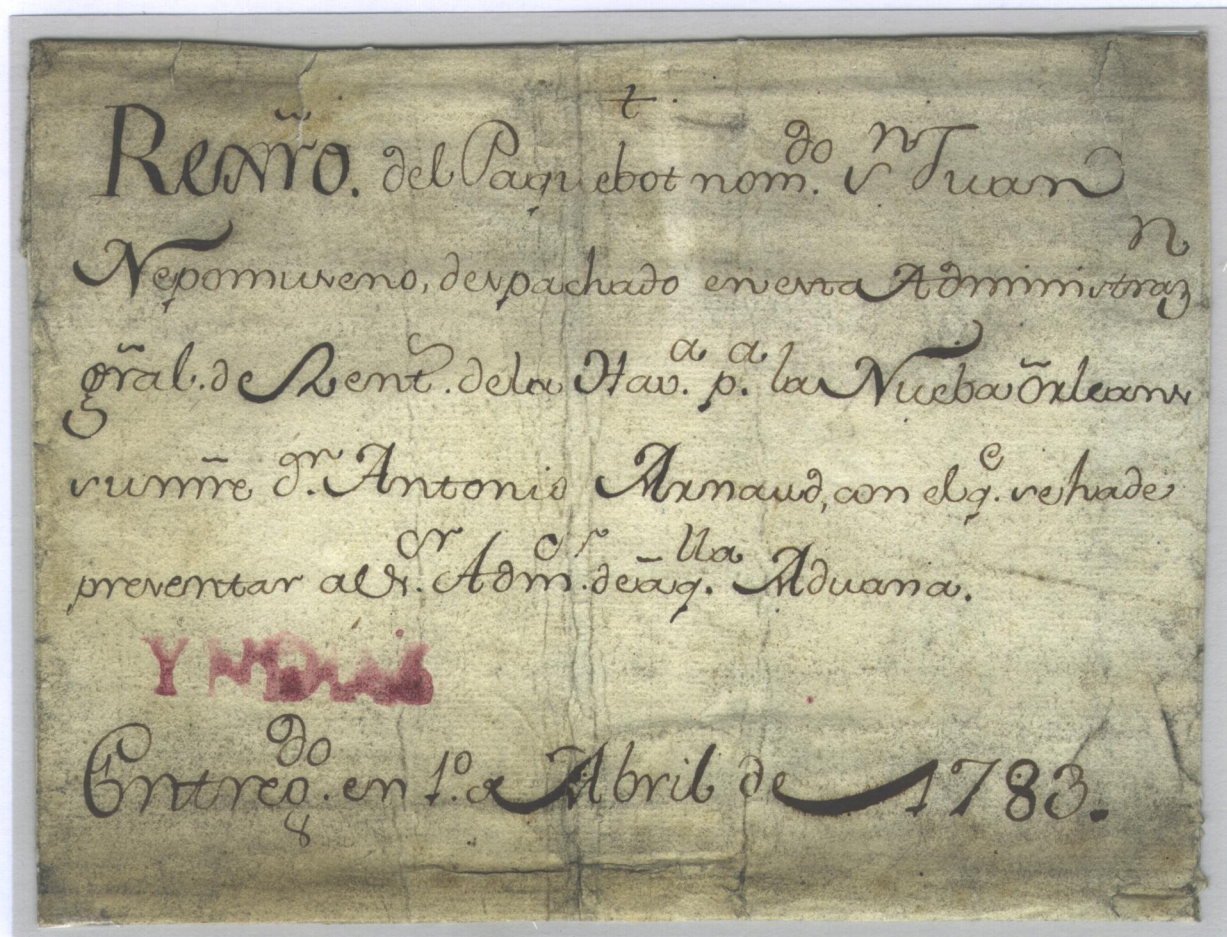 +
Rexr̃o. del Paquebot nom.do Sn Juan
Nepomuseno, despachado en esta Administrazn
gr̃al. de Rents. de la Hava. pa. la Nueba Orleans
su mr̃e Dn. Antonio Arnaud, con el qe. se ha de
presentar al Sor. Admor. de aqlla. Aduana.
YNDIAS
Entregdo. en 1o. de Abril de 1783.